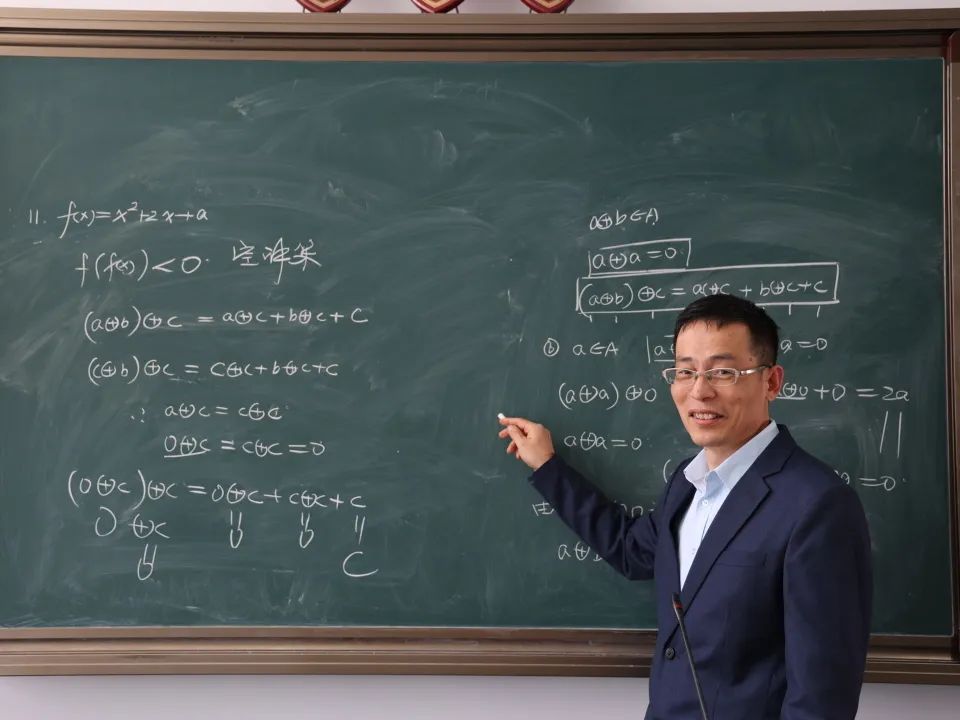 11. f(x)=x²+2x+a
f(f(x))<0. 空解集
(a⊕b)⊕c = a⊕c+b⊕c+c
(c⊕b)⊕c = c⊕c+b⊕c+c
∴ a⊕c = c⊕c
0⊕c = c⊕c = 0
(0⊕c)⊕c = 0⊕c+c⊕c+c
0 ⊕c
|| || || ||
0 0 0 C
a⊕b∈A
a⊕a=0
(a⊕b)⊕c = a⊕c + b⊕c+c
⑥ a∈A a =0
(a⊕a)⊕0 ⊕0+0=2a
||
a⊕a=0
=0
a⊕